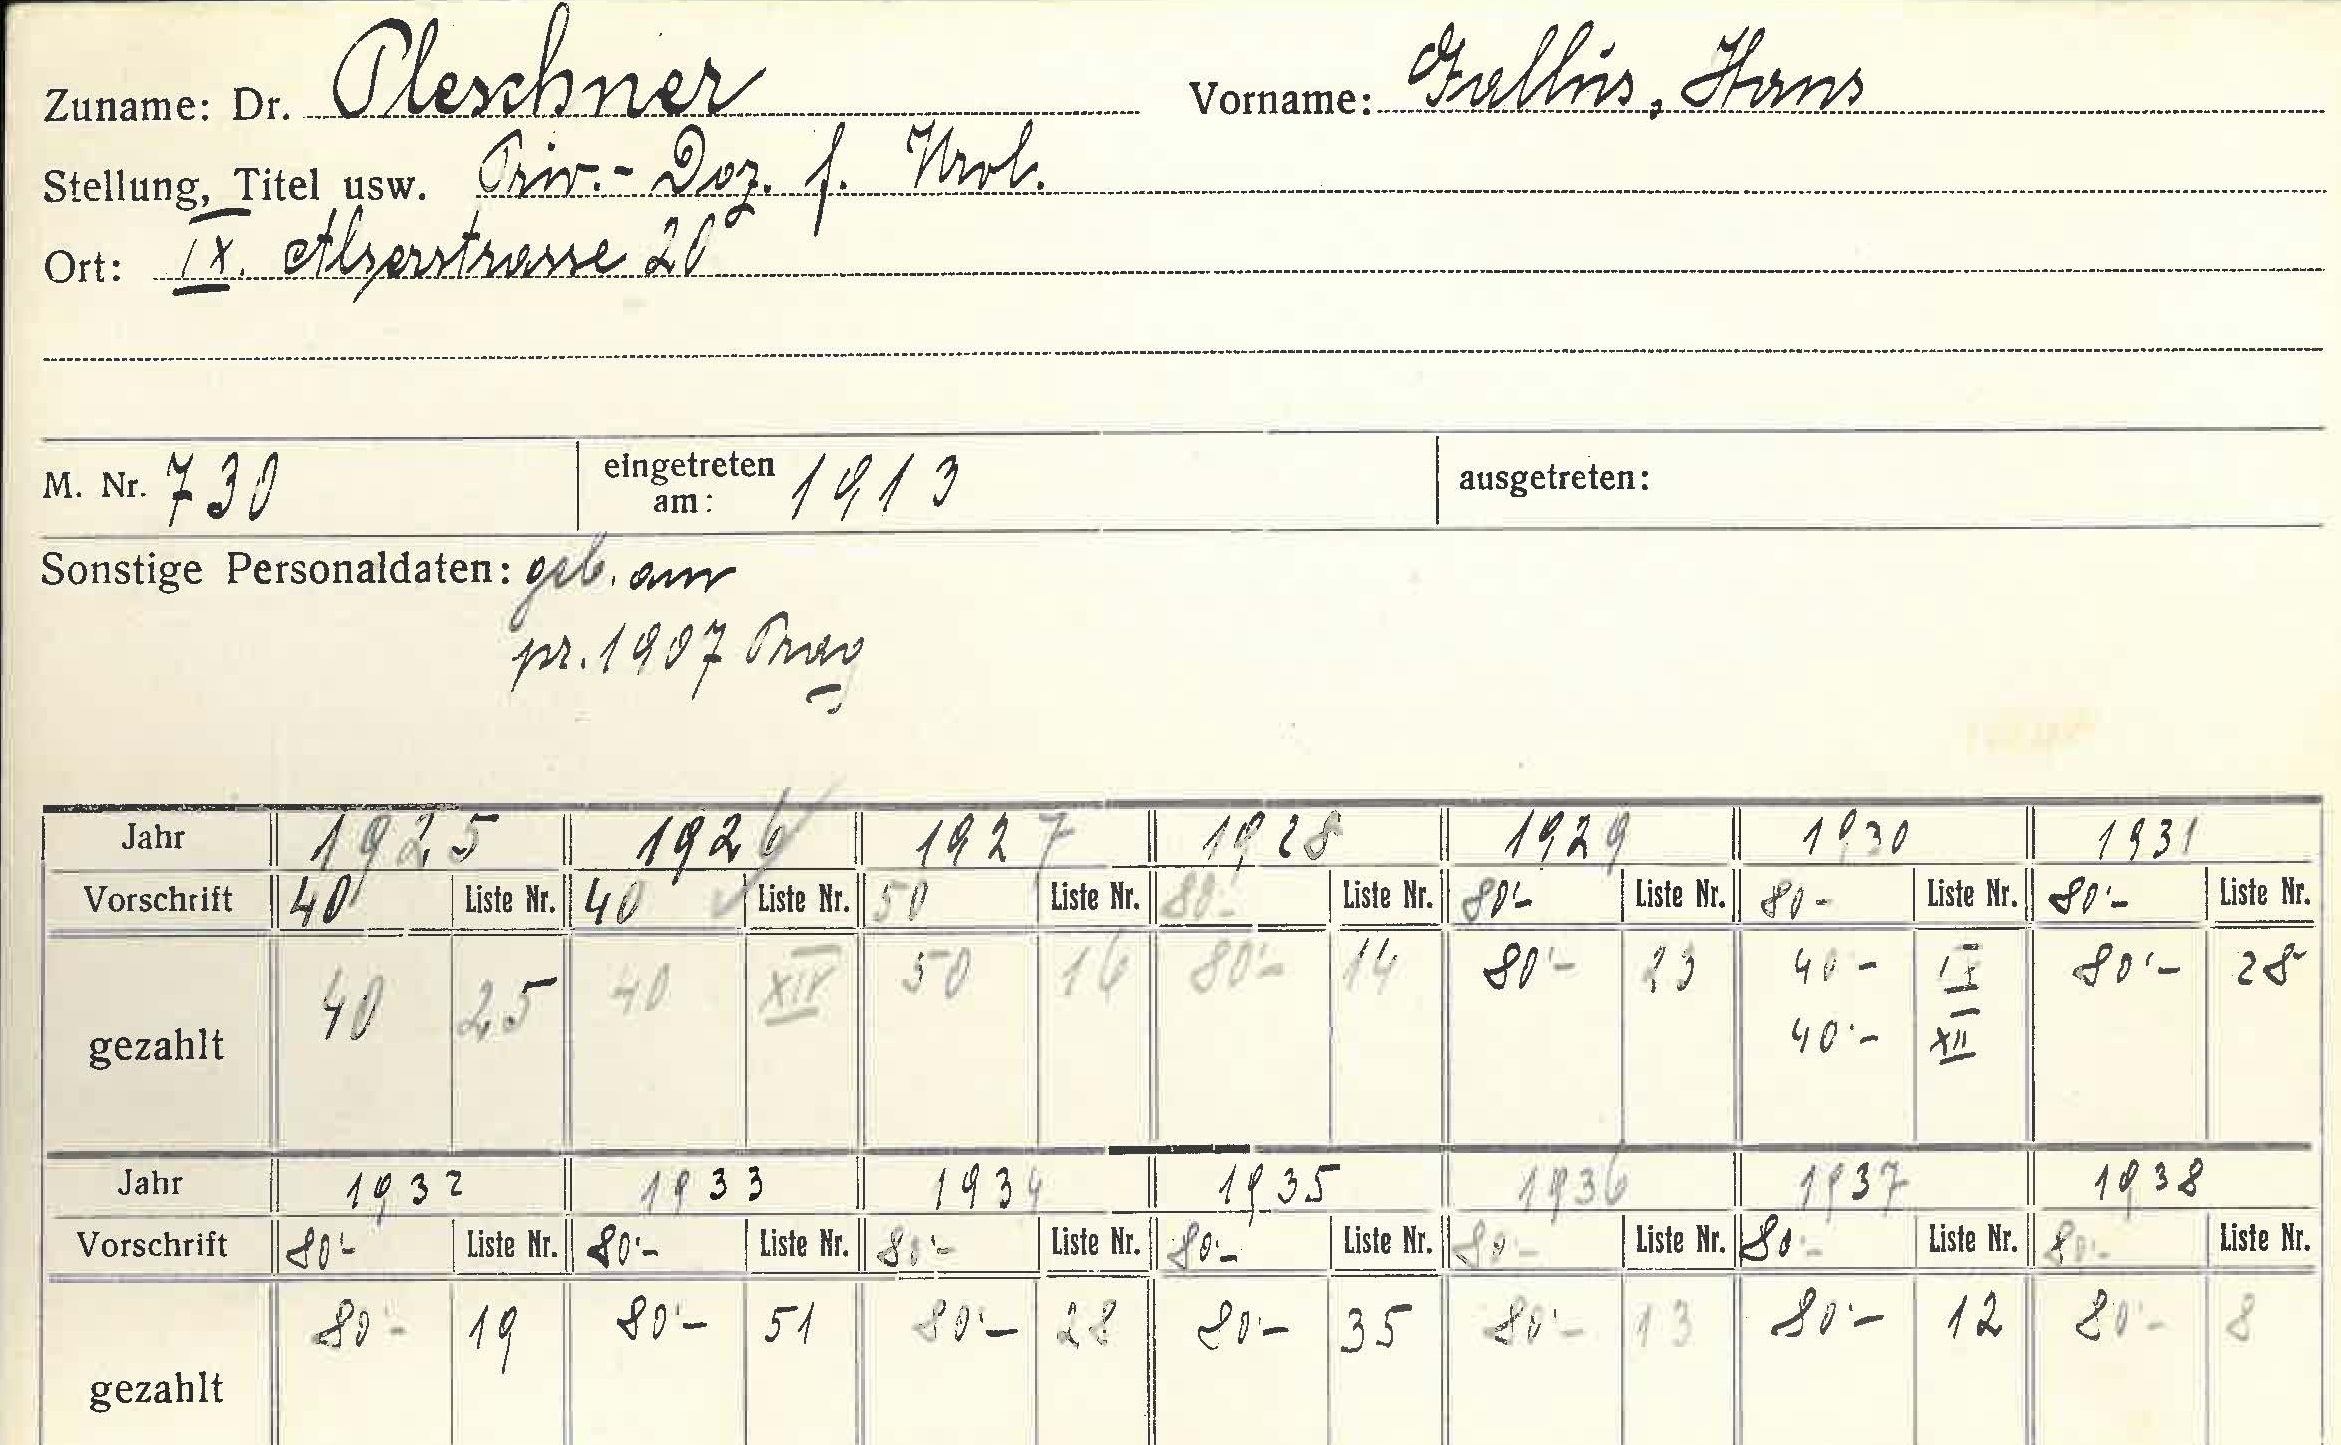 Zuname: Dr. Pleschner Vorname: Gallus, Hans
Stellung, Titel usw. Priv.- Doz. f. Urol.
Ort: IX. Alserstrasse 20
M. Nr. 730 eingetreten am: 1913 ausgetreten:
Sonstige Personaldaten: geb. am
pr. 1907 Prag
Jahr 1925 1926 1927 1928 1929 1930 1931
Vorschrift 40 Liste Nr. 40 Liste Nr. 50 Liste Nr. 80'- Liste Nr. 80'- Liste Nr. 80- Liste Nr. 80'- Liste Nr.
gezahlt 40 25 40 XIV 50 16 80'- 14 80'- 23 40- IX 80'- 28
40'- XII
Jahr 1932 1933 1934 1935 1936 1937 1938
Vorschrift 80'- Liste Nr. 80'- Liste Nr. 80'- Liste Nr. 80'- Liste Nr. 80'- Liste Nr. 80'- Liste Nr. 80'- Liste Nr.
gezahlt 80'- 19 80'- 51 80'- 28 80'- 35 80'- 13 80'- 12 80'- 8